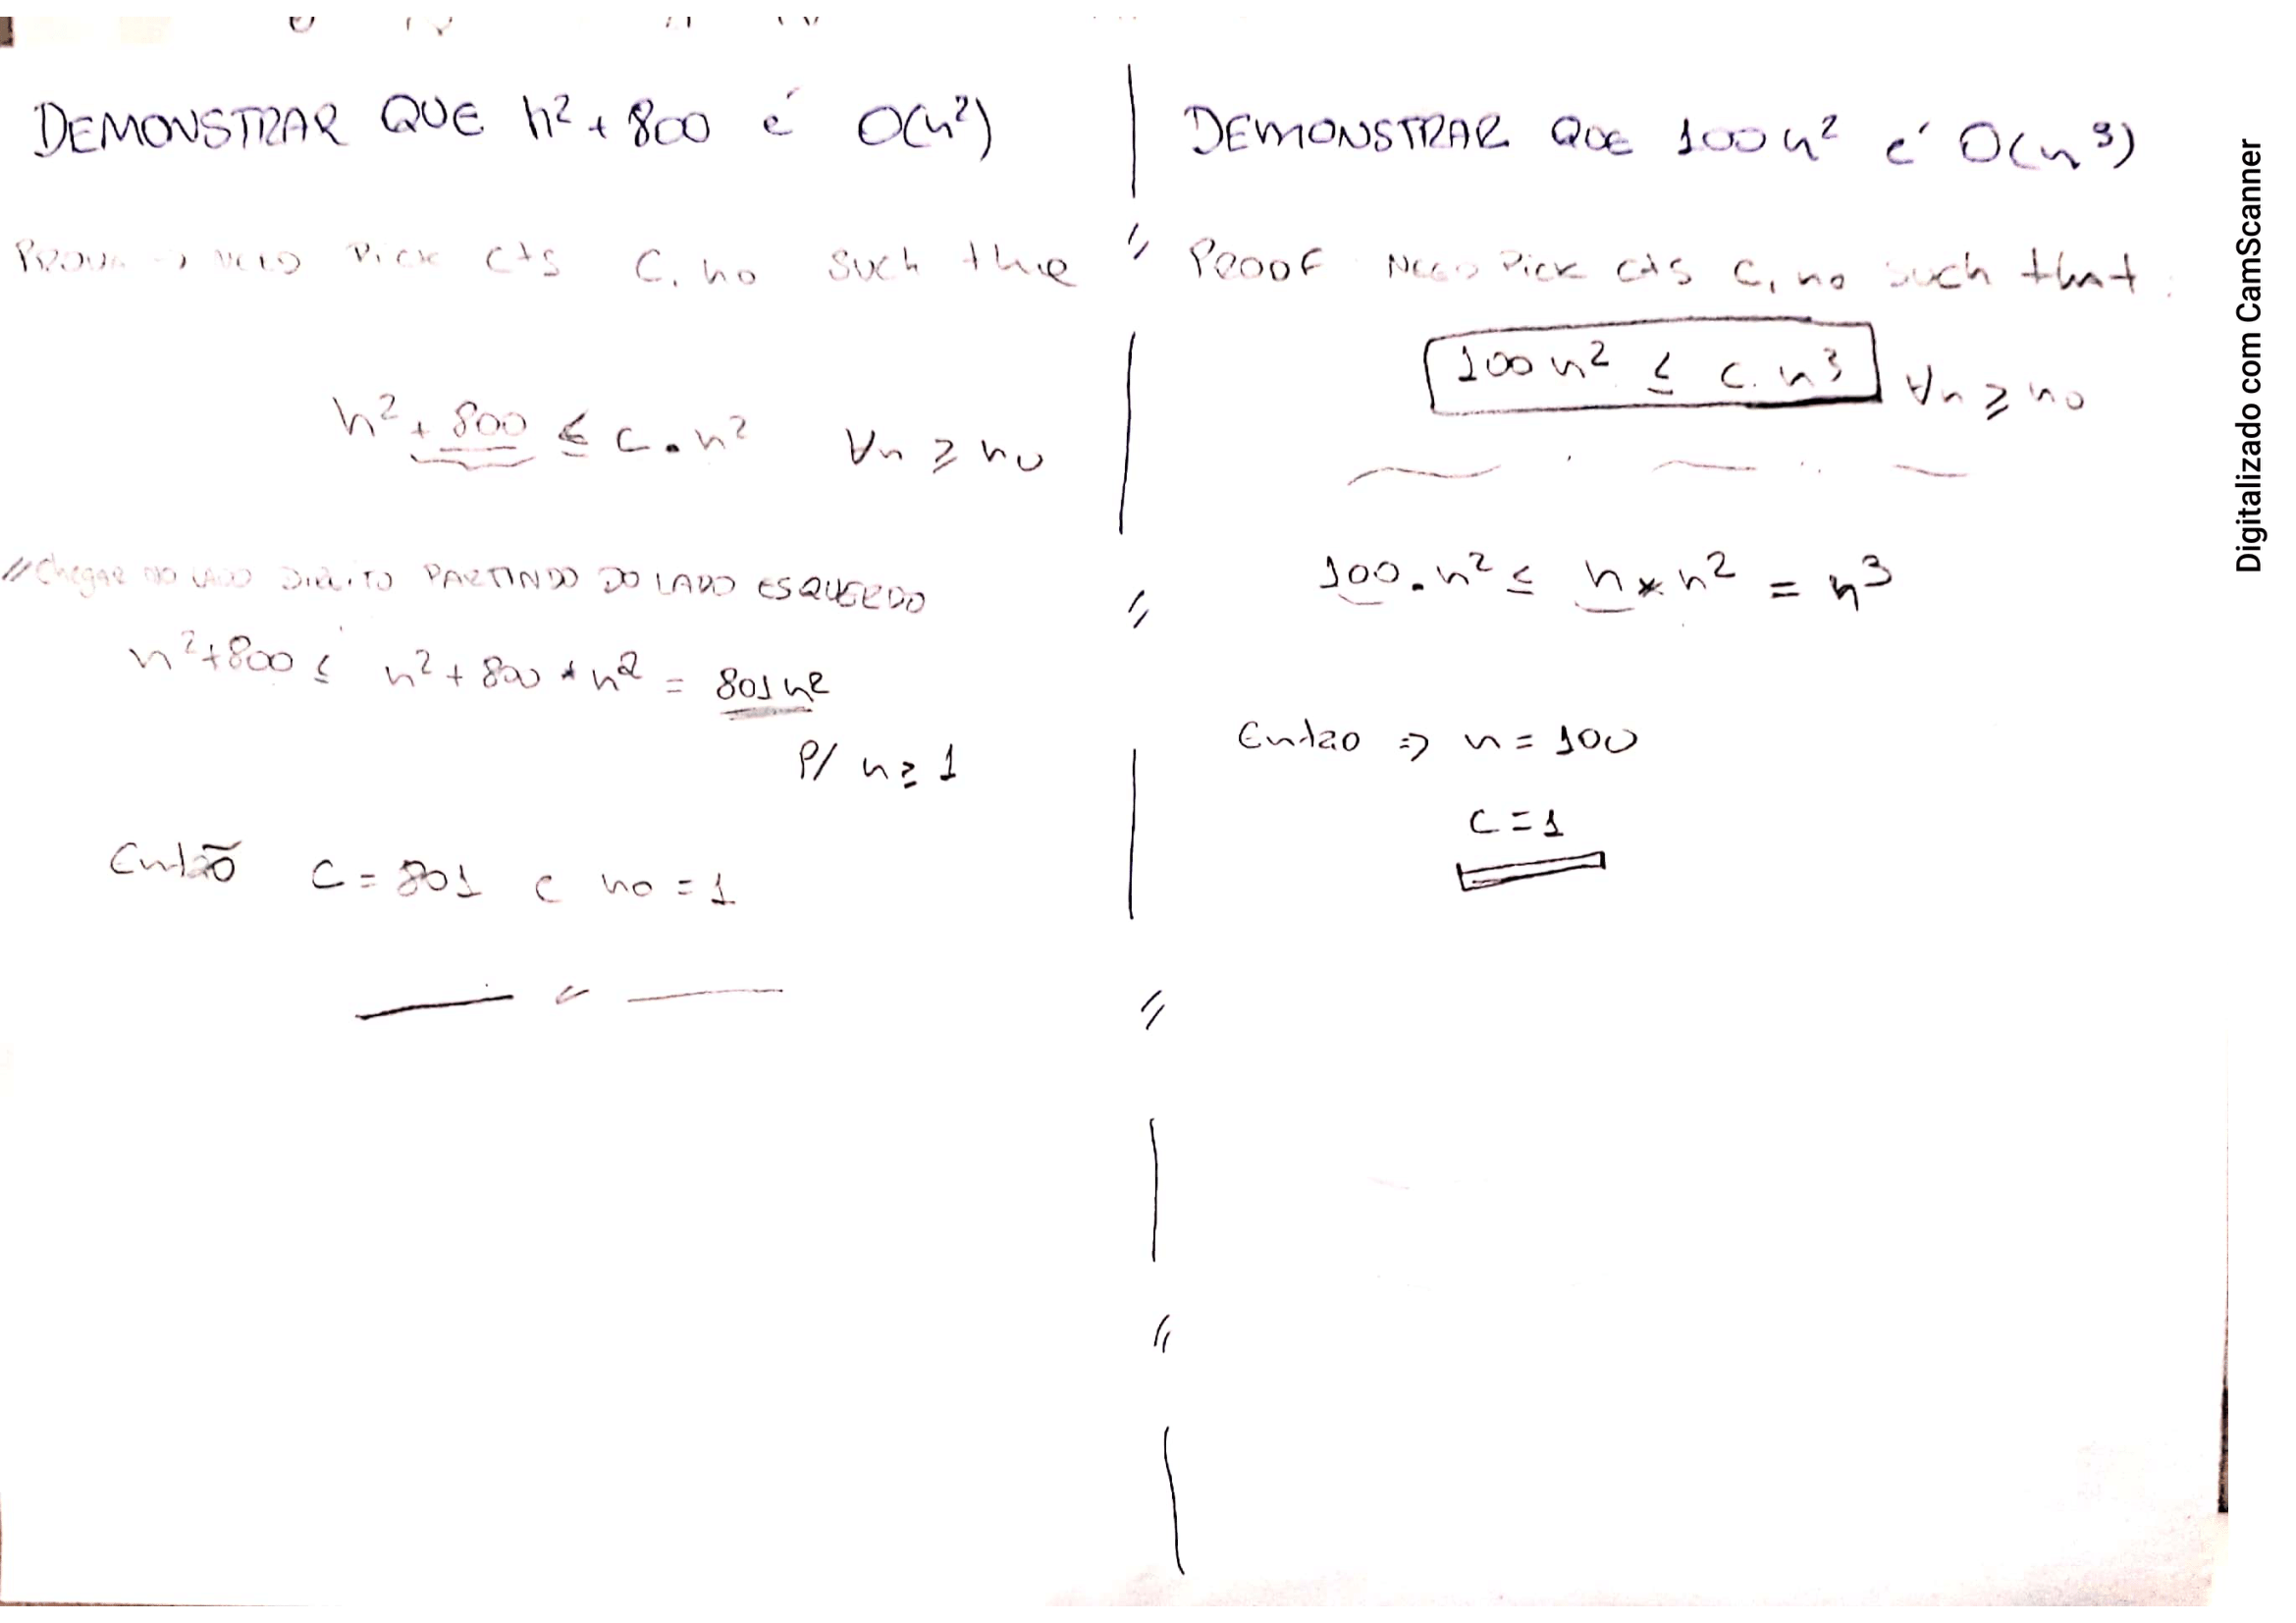 DEMONSTRAR QUE n² + 800 é O(n²)
Prova → need Pick cts C, no such the
n² + 800 ≤ c . n² ∀n ≥ no
// Chegar no lado DIREITO PARTINDO DO LADO ESQUERDO
n² + 800 ≤ n² + 800 * n² = 801n²
P/ n ≥ 1
Então C = 801 e no = 1
DEMONSTRAR QUE 100n² é O(n³)
PROOF Need Pick cts C, no such that:
100n² ≤ c. n³ ∀n ≥ no
100 . n² ≤ n * n² = n³
Entao ⇒ n = 100
c = 1
Digitalizado com CamScanner